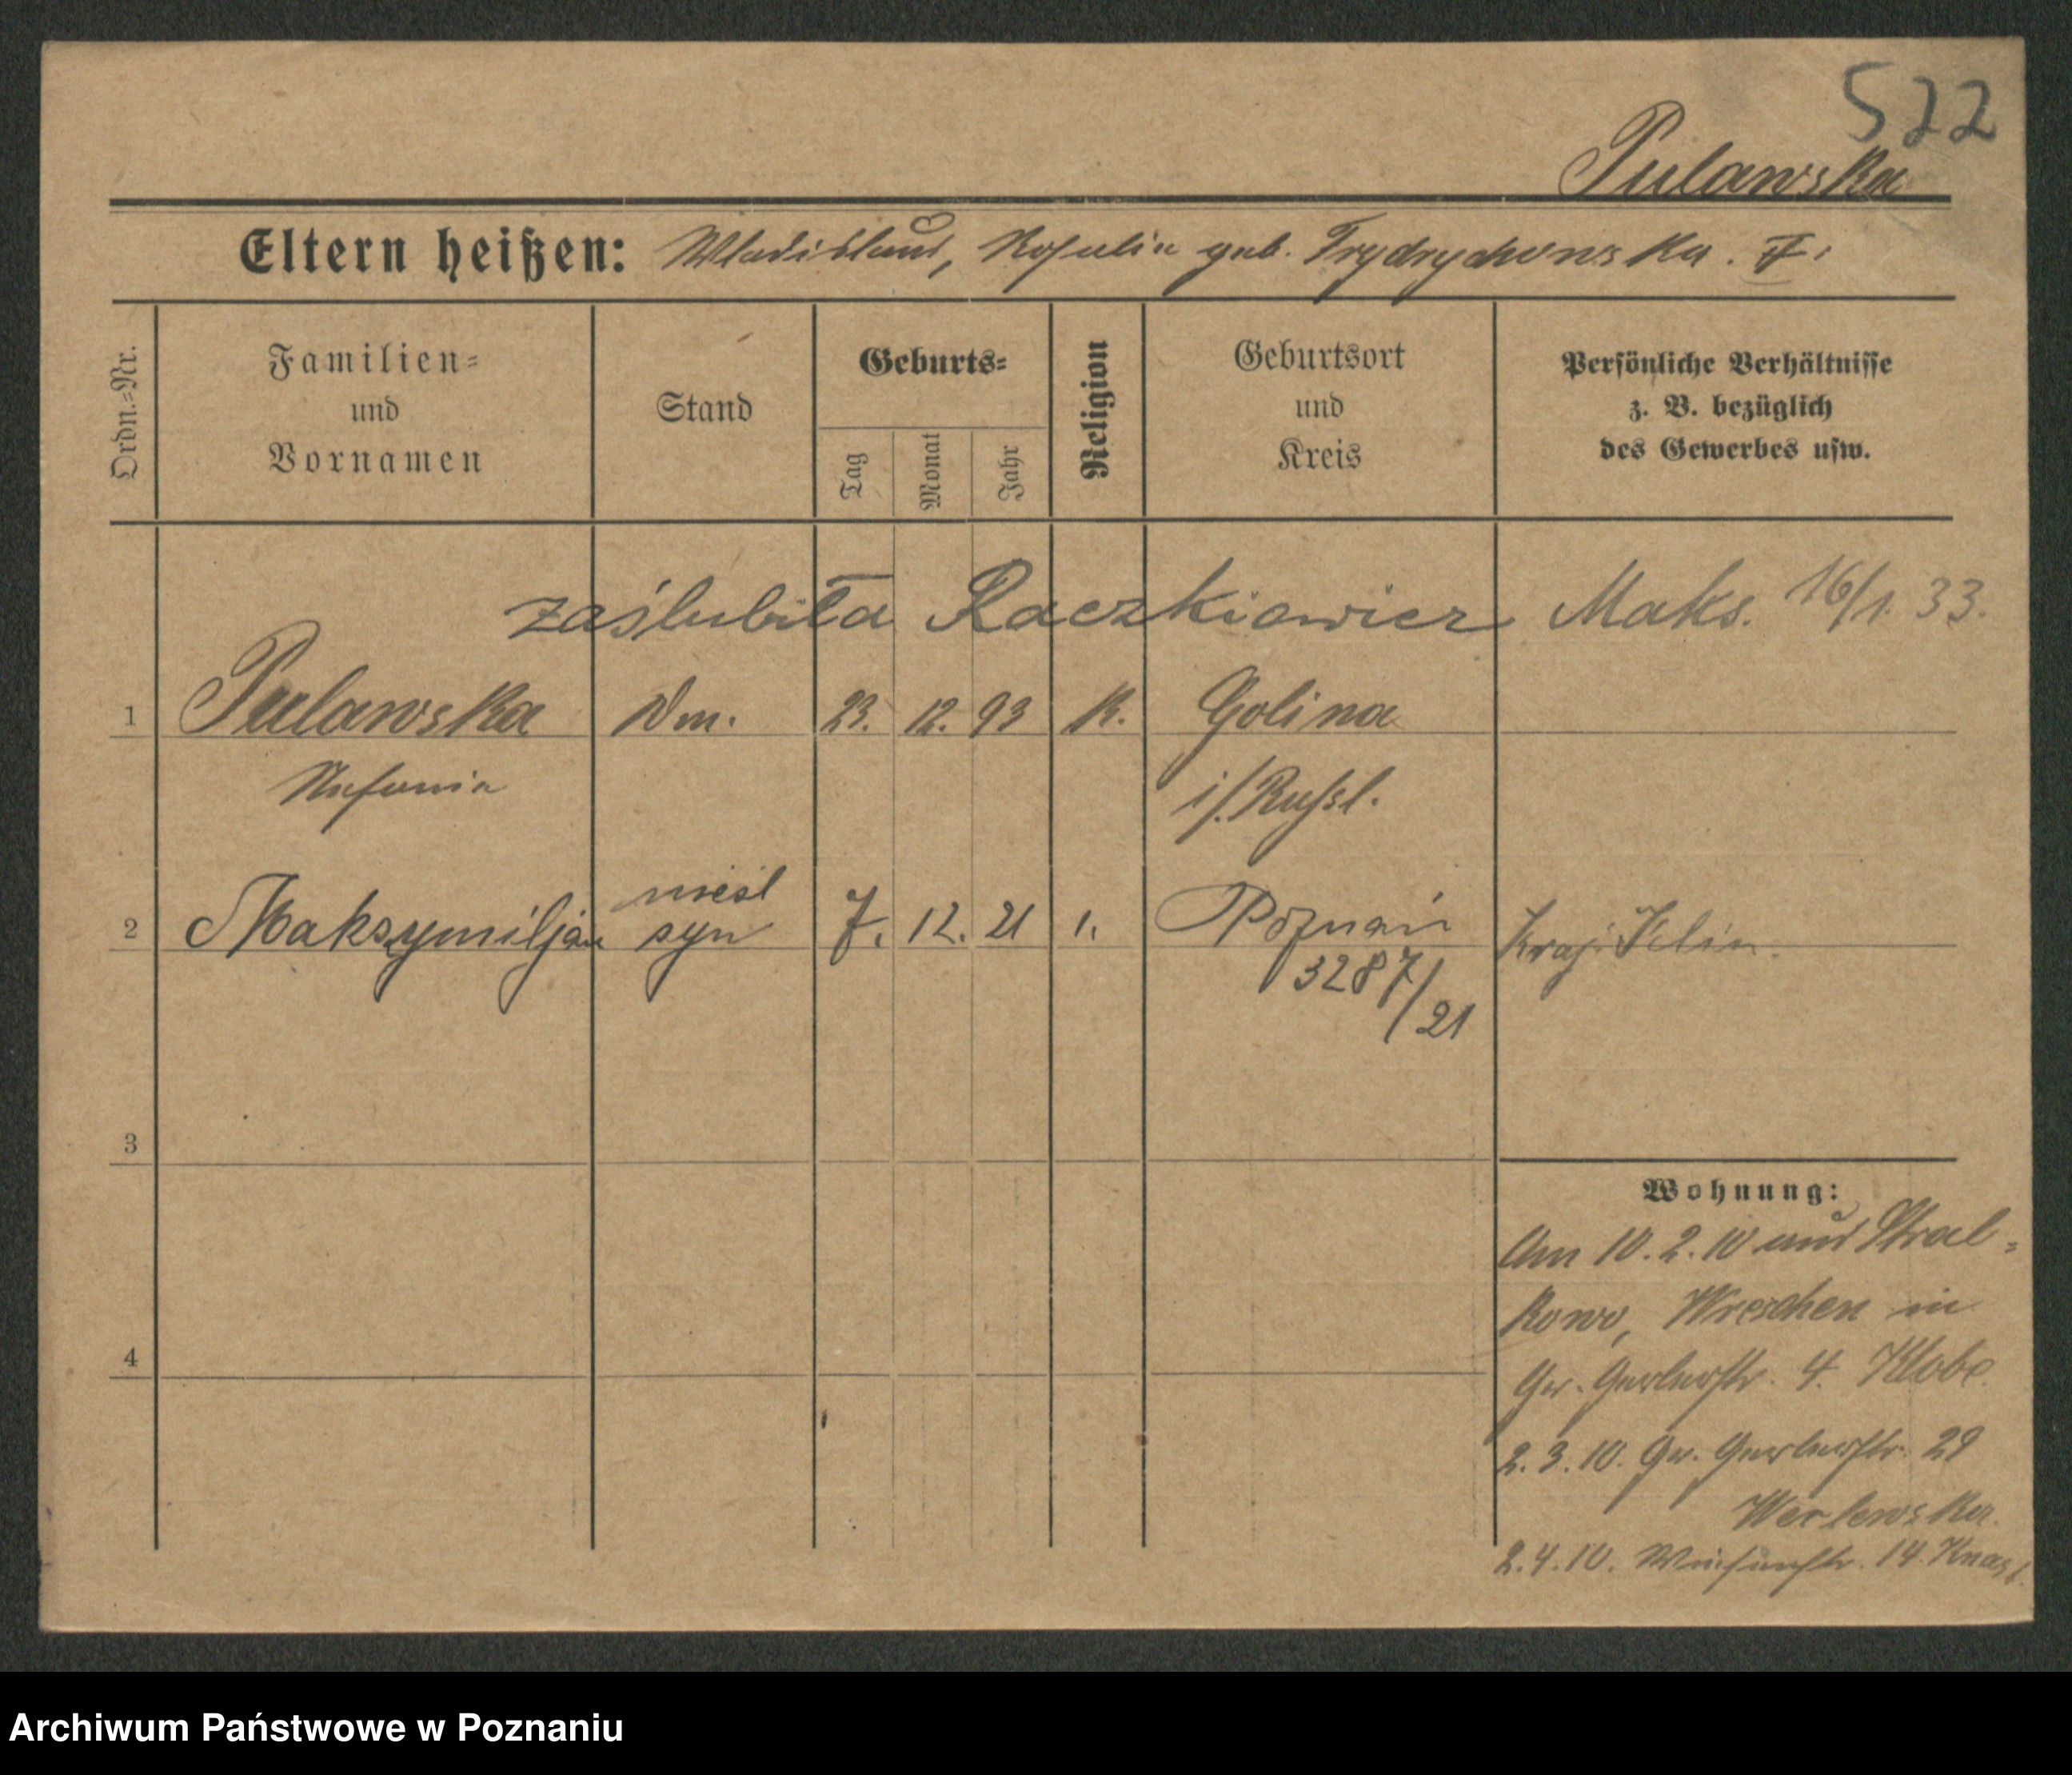 522
Pulawska
Eltern heißen: Wladislaus, Rosalia geb. Frydrychowska.
Ordn.=Nr.
Familien=
und
Vornamen
Stand
Geburts=
Tag
Monat
Jahr
Religion
Geburtsort
und
Kreis
Persönliche Verhältnisse
z. B. bezüglich
des Gewerbes usw.
zaślubiła Raczkiewicz Maks. 16/1. 33.
1 Pulawska 23. 12. 93 K. Golina
i/Russl.
2 Maksymiljan nieśl syn 7. 12. 21 Poznań
3287/21
3
Wohnung:
Am 10.2.10 aus Stral=
kowo, Wreschen in
4 Gr. Gerberstr. 4. Klobe
2.3.10. Gr. Gerberstr. 29
2.4.10. 14
Archiwum Państwowe w Poznaniu